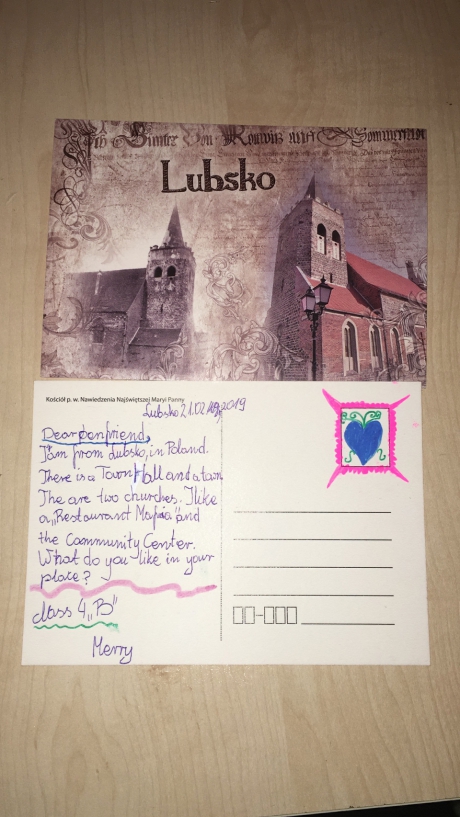 Lubsko
Kościół p. w. Nawiedzenia Najświętszej Maryi Panny
Lubsko 21.02.2019
Dear penfriend,
I'am from Lubsko, in Poland.
There is a Town Hall and a town
The are two churches. I like
a „Restaurant Mafia” and
the Community Center.
What do you like in your
place?
class 4 „B”
Merry